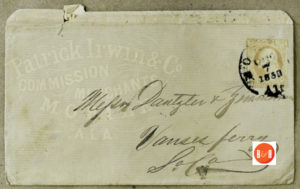 Patrick Irwin & Co.
COMMISSION
MERCHANTS
ALA
7
1858
Messrs Dantzler &
Vances ferry
So Ca
R&R